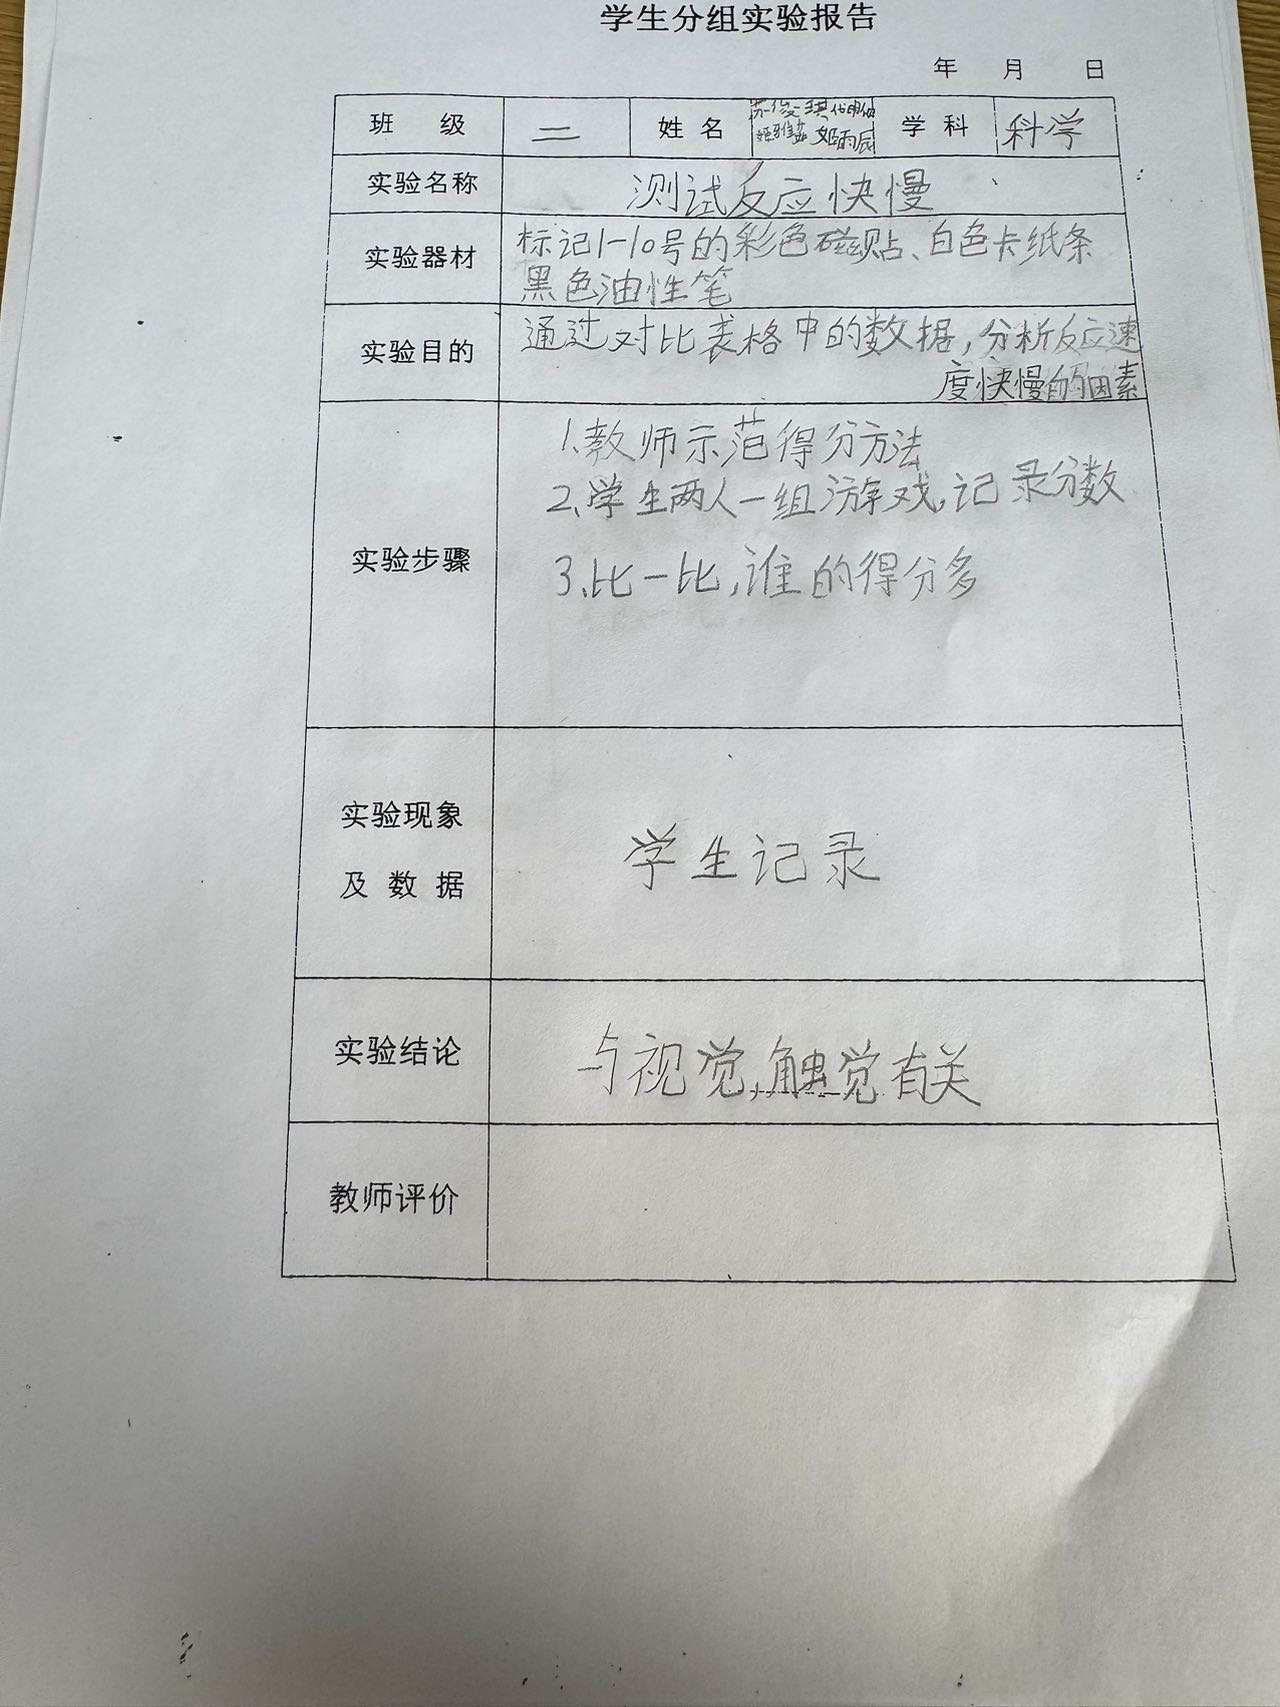 学生分组实验报告
年 月 日
班 级 二 姓 名 姬雨辰 学 科 科学
实验名称 测试反应快慢
实验器材 标记1-10号的彩色磁贴、白色卡纸条
黑色油性笔
实验目的 通过对比表格中的数据,分析反应速
度快慢的因素
实验步骤
1、教师示范得分方法
2、学生两人一组游戏,记录分数
3、比一比,谁的得分多
实验现象
及 数 据
学生记录
实验结论 与视觉、触觉有关
教师评价